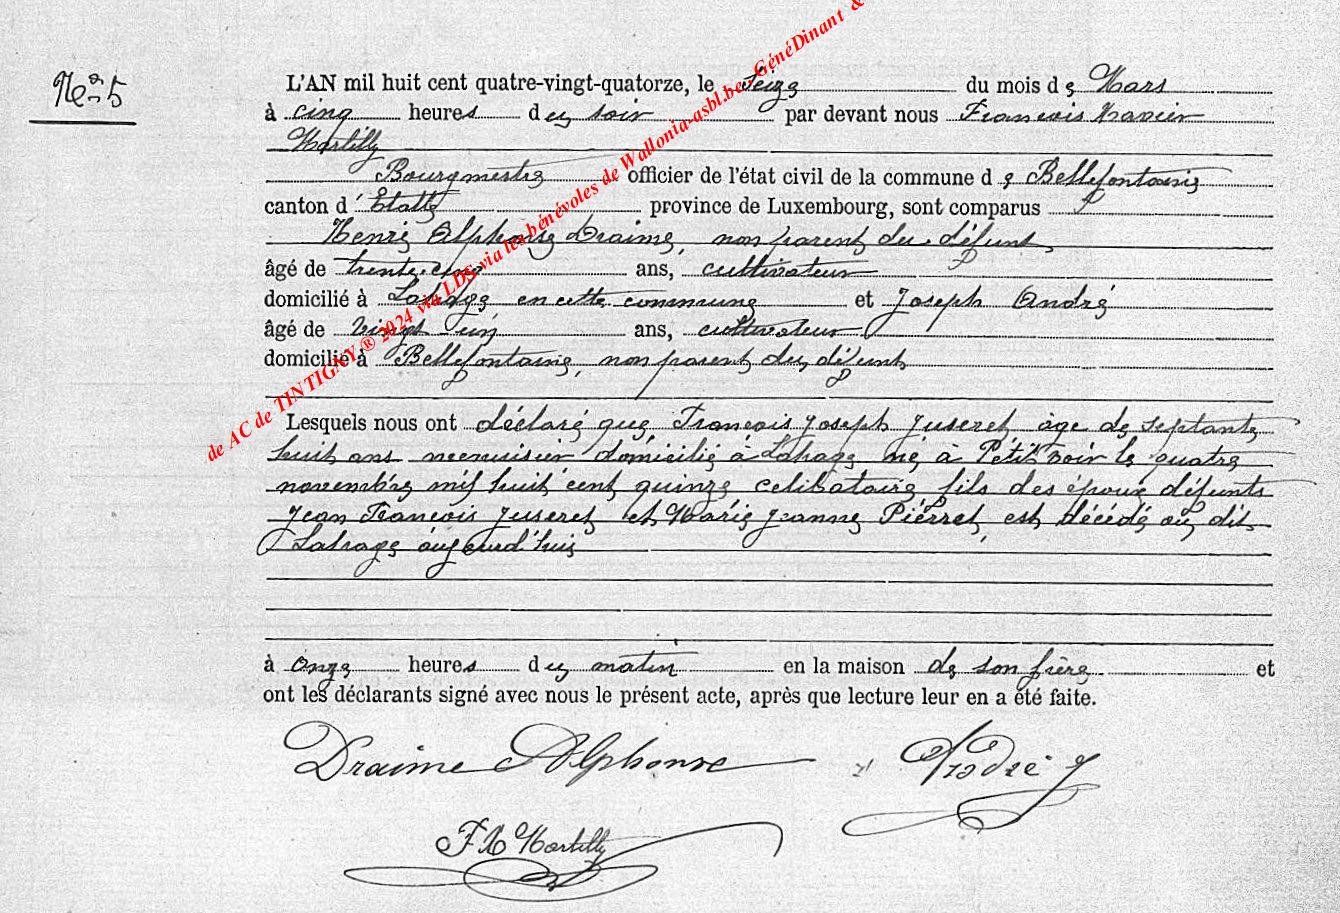 N° 5
L'AN mil huit cent quatre-vingt-quatorze, le Seize du mois de Mars
à cinq heures du soir par devant nous François Xavier
Martilly
Bourgmestre officier de l'état civil de la commune de Bellefontaine
canton d'Etalle province de Luxembourg, sont comparus
Henri Alphonse Draime, non parent du défunt
âgé de trente-cinq ans, cultivateur
domicilié à Lahage en cette commune et Joseph André
âgé de vingt-un ans, cultivateur
domicilié à Bellefontaine, non parent du défunt
Lesquels nous ont déclaré que François Joseph Juseret âgé de septante
huit ans menuisier domicilié à Lahage né à Petitvoir le quatre
novembre mil huit cent quinze celibataire fils des époux défunts
Jean François Juseret et Marie Jeanne Piérret, est décédé au dit
Lahage aujourd'hui
à onze heures du matin en la maison de son frère et
ont les déclarants signé avec nous le présent acte, après que lecture leur en a été faite.
Draime Alphonse André J
F X Martilly
de AC de TINTIGNY ® 2024 via LDS via les bénévoles de Wallonia-asbl.be, GénéDinant &